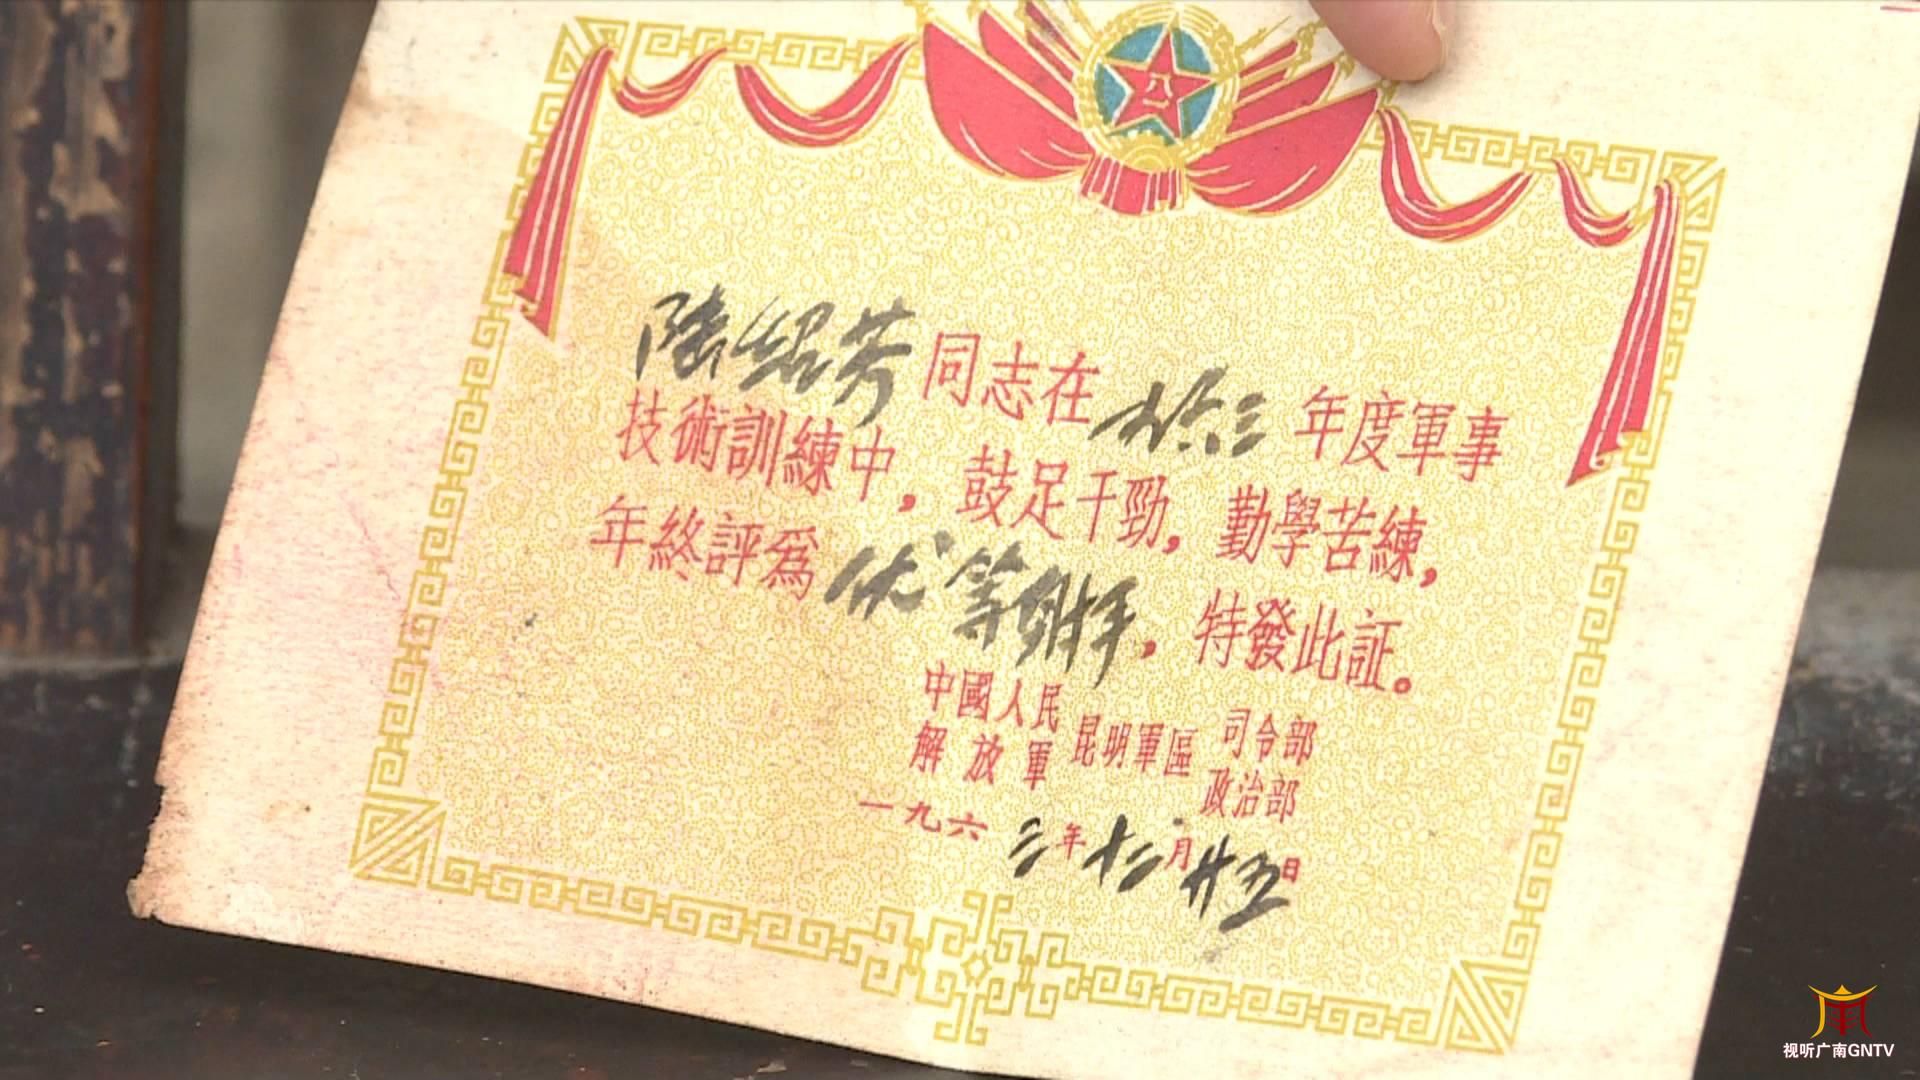 八一
陆绍芳同志在一九六三年度軍事
技術訓練中，鼓足干勁，勤學苦練，
年終評爲优等射手，特發此証。
中國人民
解放軍
昆明軍區
司令部
政治部
一九六三年十二月廿五日
视听广南GNTV